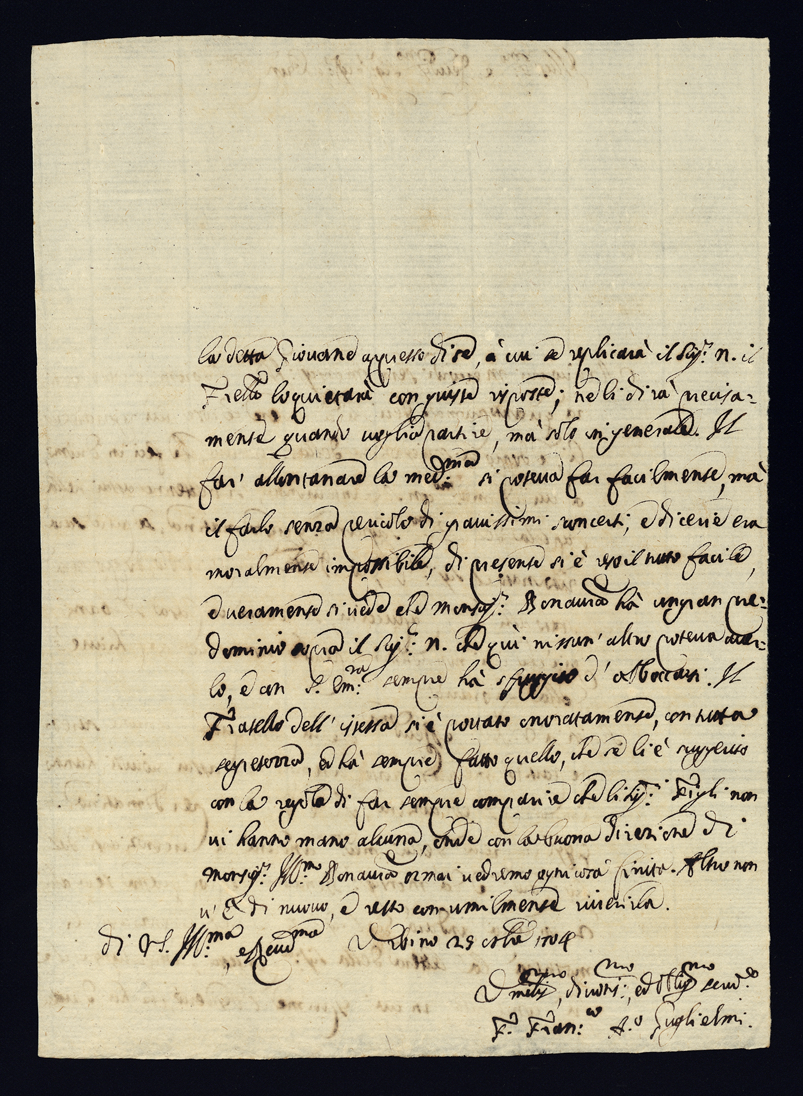 la detta Giovane appresso di se, à cui se replicarà il Sig.r N. il
Fratello lo quietarà con giuste risposte; ne li dirà precisa-
mente quando voglia partire, mà solo in generale. Il
far' allontanare la med.ma si poteva far facilmente, mà
il farlo senza pericolo di gravissimi sconcerti, e dicerie era
moralmente impossibile, di presente si è reso il tutto facile,
e veramente si vede che monsig.r Bonaventura hà un gran pre-
dominio sopra il Sig.r N. che quì nissun' altro poteva aver-
lo, e con S. Em.za sempre hà sfuggito d' abboccarsi. Il
Fratello dell' istessa si è portato onoratamente, con tutta
segretezza, ed hà sempre fatto quello, che se li è suggerito
con la regola di far sempre comparire che li Sig.ri Figli non
vi hanno mano alcuna, onde con la buona direzione di
monsig.r Ill.mo ormai vedremo ogni cosa finita. Altro non
v' è di nuovo, e resto con umilmente riverirla.
di V.S. Ill.ma, e Rev.ma Urbino 28 1704
Umiliss.mo, divotiss.mo, ed Oblig.mo Serv.e
F. Fran.co A.o Guglielmi.